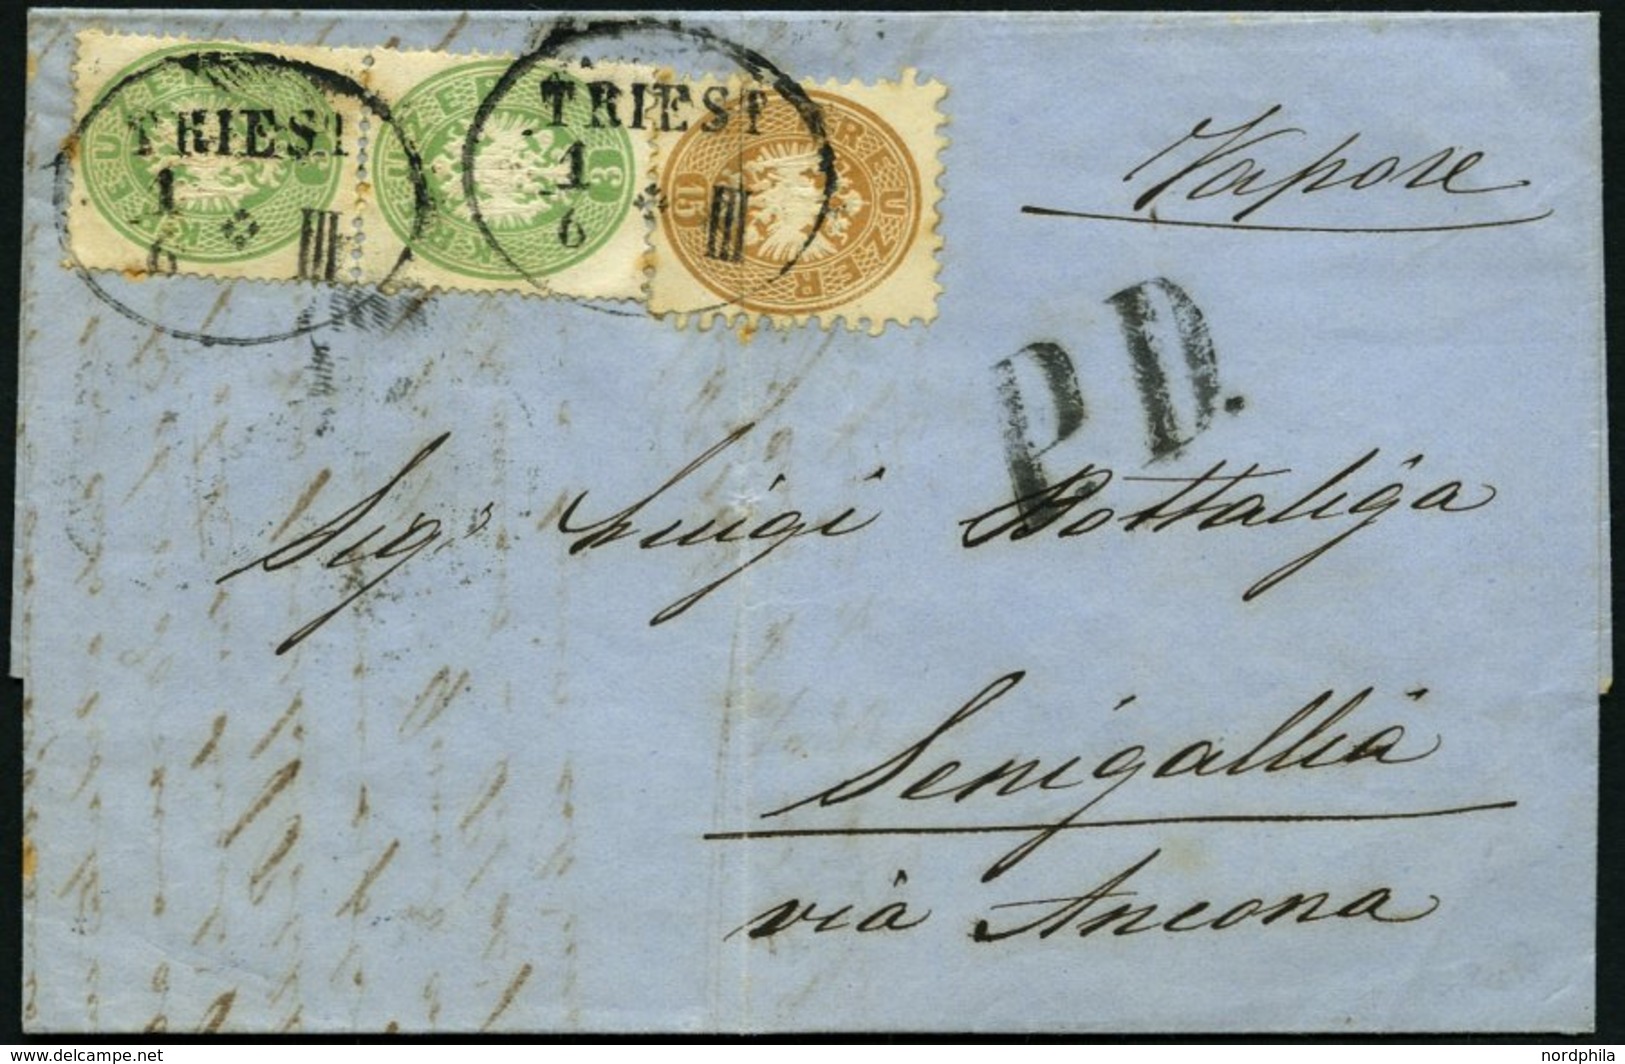 TRIEST
1
6
III
TRIEST
1
6
III
3 KREUZER
3 KREUZER
15 KREUZER
Vapore
P.D.
Sigr Luigi Bottaliga
Senigallia
via Ancona
nordphila